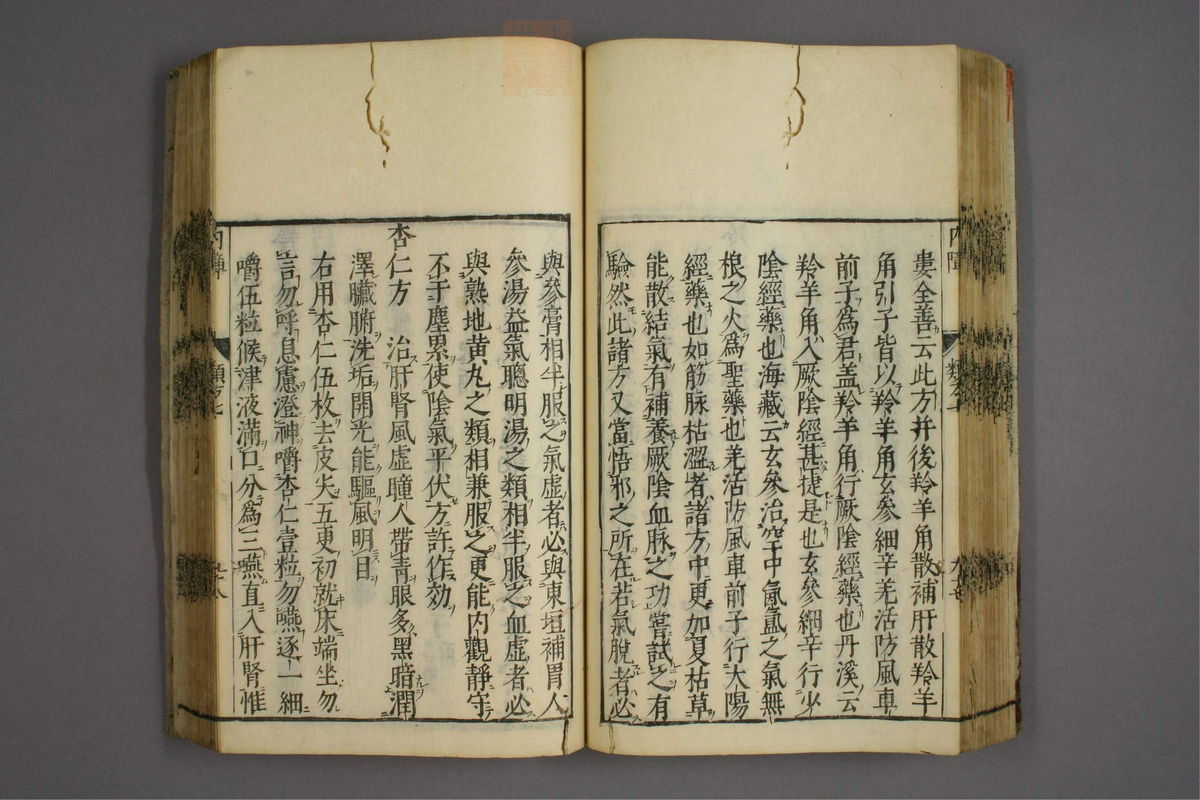 婁全善云此方并後羚羊角散補肝散羚羊
角引子皆以羚羊角玄參細辛羌活防風車
前子為君盖羚羊角行厥陰經藥也丹溪云
羚羊角入厥陰經甚捷是也玄參細辛行少
陰經藥也海藏云玄參治空中氤氳之氣無
根之火為聖藥也羌活防風車前子行太陽
經藥也如筋脉枯澀者諸方中更加夏枯草
能散結氣有補養厥陰血脉之功嘗試之有
驗然此諸方又當悟邪之所在若氣脫者必
與參膏相半服之氣虛者必與東垣補胃人
參湯益氣聰明湯之類相半服之血虛者必
與熟地黃丸之類相兼服之更能内觀靜守
不干塵累使陰氣平伏方許作効
杏仁方 治肝腎風虛瞳人帶青眼多黑暗潤
澤臟腑洗垢開光能驅風明目
右用杏仁伍枚去皮尖五更初就床端坐勿
言勿呼息慮澄神嚼杏仁壹粒勿嚥逐一細
嚼伍粒候津液滿口分為三嚥直入肝腎惟